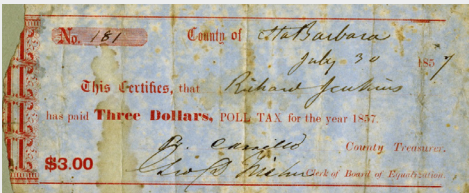 No. 181 County of Sta Barbara
July 30 1857
This Certifies, that Richard Jenkins
has paid Three Dollars, POLL TAX for the year 1857.
R. Carrillo County Treasurer.
$3.00 Geo D. Fisher Clerk of Board of Equalization.